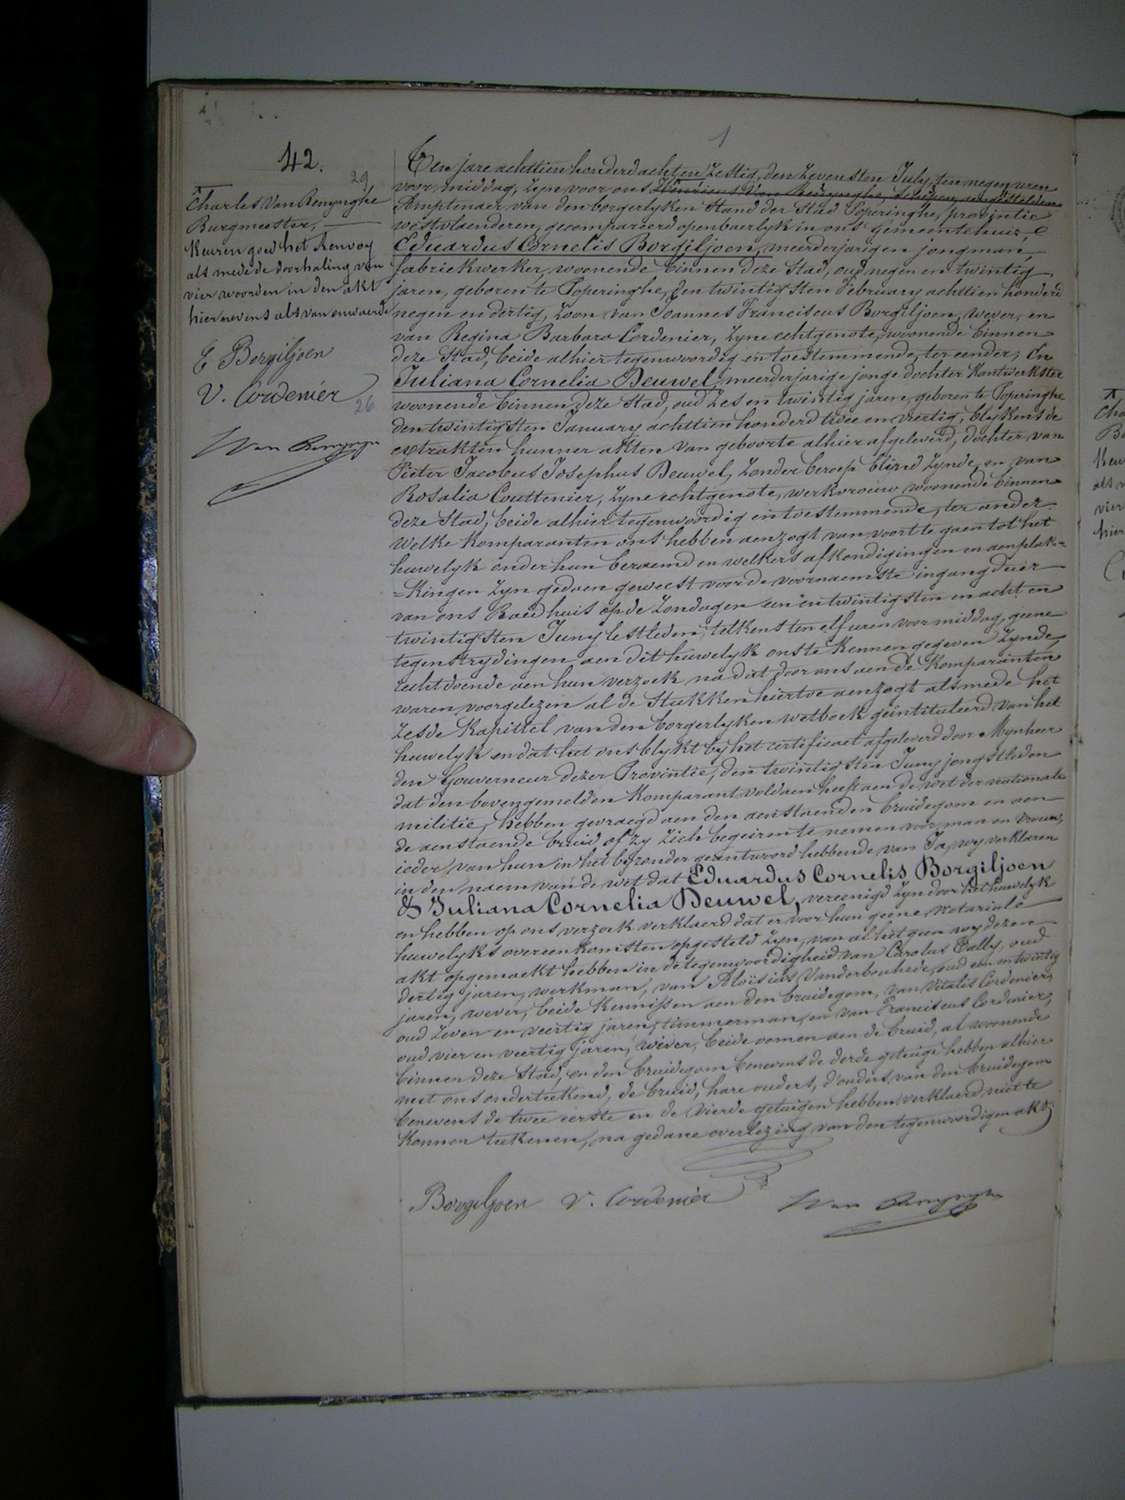 1
42.
29
Charles Van Renynghe
Burgmeester,
Keuren goed het Renvoy
als mede de doorhaling van
vier woorden in den akt
hiernevens als van onwaarde
E Borgiljoen
V. Cordenier
26
Ten jare achttien honderd acht en Zestig, den Zevensten July, ten negen uren
voor middag, Zyn voor ons
Amptenaer van den borgerlyken Stand der Stad Poperinghe, provintie
westvlaenderen, gecompareerd openbaerlyk in ons gemeentehuis,
Eduardus Cornelis Borgiljoen, meerderjarigen jongman,
fabriekwerker, woonende binnen deze Stad, oud negen en twintig
jaren, geboren te Poperinghe, den twintigsten February achttien honderd
negen en dertig, Zoon van Joannes Franciscus Borgiljoen, wever, en
van Regina Barbara Cordenier, Zyne echtgenote, woonende binnen
deze Stad, beide alhier tegenwoordig en toestemmende, ter eender, En
Juliana Cornelia Deuwel, meerderjarige jonge dochter Kantwerkster
woonende binnen deze Stad, oud Zes en twintig jaren, geboren te Poperinghe
den twintigsten January achttien honderd twee en veertig, blykens de
extrakten hunner akten van geboorte alhier afgeleverd, dochter van
Pieter Jacobus Josephus Deuwel, Zonder beroep blind Zynde, en van
Rosalia Couttenier, Zyne echtgenote, werkvrouw, woonende binnen
deze Stad, beide alhier tegenwoordig en toestemmende, ter ander.
Welke Komparanten ons hebben aenzogt van voort te gaen tot het
huwelyk onder hun beraemd en welkers afkondigingen en aenplak=
=kingen Zyn gedaen geweest voor de voornaemste ingangdeur
van ons Raedhuis op de Zondagen een en twintigsten en acht en
twintigsten Juny lestleden, telkens ten elf uren voor middag, geene
tegenstrydingen aen dit huwelyk ons te Kennen gegeven Zynde,
recht doende aen hun verzoek na dat door ons aen de Komparanten
waren voorgelezen al de Stukken hiertoe aenzogt alsmede het
Zesde Kapittel van den borgerlyken wetboek geïntituleerd van het
huwelyk en dat het ons blykt by het certificaet afgeleverd door Mynheer
den Gouverneur dezer Provintie, den twintigsten Juny jongstleden
dat den bovengemelden Komparant voldaen heeft aen de wet der nationale
militie, hebben gevraegd aen den aenstaenden bruidegom en aen
de aenstaende bruid of zy Zich begeiren te nemen voor man en vrouw,
ieder van hun in het byzonder geantwoord hebbende van Ja, wy verklaren
in den naem van de wet dat Eduardus Cornelis Borgiljoen
& Juliana Cornelia Deuwel, vereenigd Zyn door het huwelyk
en hebben op ons verzoek verklaerd dat er voor hun geene notariale
huwelyks overeenkomsten opgesteld Zyn, van al het geen wy dezen
akt opgemaekt hebben in de tegenwoordigheid van Carolus Bally, oud
dertig jaren, werkman, van Aloïsius Vanderbouhede, oud een en twintig
jaren, wever, beide Kennissen aen den bruidegom, van Vitalis Cordenier,
oud Zeven en veertig jaren, timmerman, en van Franciscus Cordenier,
oud vier en veertig jaren, wever, beide oomen aen de bruid, al woonende
binnen deze Stad, en den bruidegom benevens de derde getuige hebben alhier
met ons onderteekend, de bruid, hare ouders, d'ouders van den bruidegom
benevens de twee eerste en de vierde getuigen hebben verklaerd niet te
Konnen teekenen, na gedane overlezing van den tegenwoordigen akt.
Borgiljoen V. Cordenier